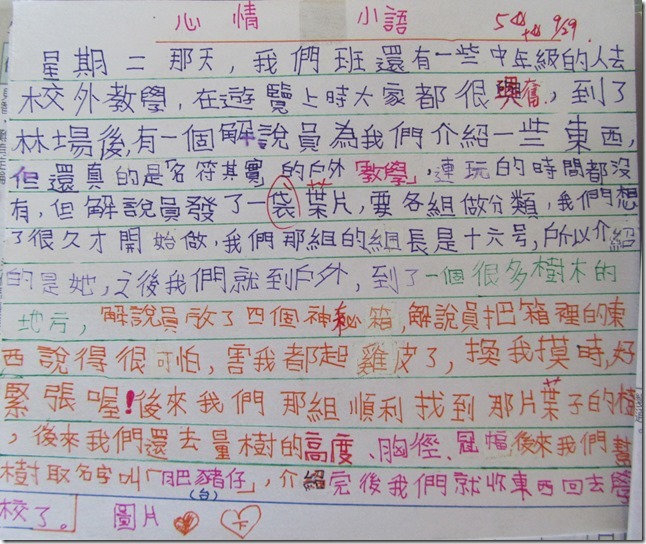 心情 小語 9/29
星期二那天,我們班還有一些中年級的人去
校外教學,在遊覽上時大家都很興奮,到了
林場後,有一個解說員為我們介紹一些東西,
但還真的是「名符其實」的戶外「教學」,連玩的時間都沒
有,但解說員發了一袋葉片,要各組做分類,我們想
了很久才開始做,我們那組的組長是十六号,所以介紹
的是她,之後我們就到戶外,到了一個很多樹木的
地方,解說員放了四個神秘箱,解說員把箱裡的東
西說得很可怕,害我都起雞皮了,換我摸時,好
緊張喔!後來我們那組順利找到那片葉子的樹
,後來我們還去量樹的高度、胸徑、冠幅後來我們幫
樹取名字叫「肥豬仔」,介紹完後我們就收東西回去學
(台)
校了。 圖片